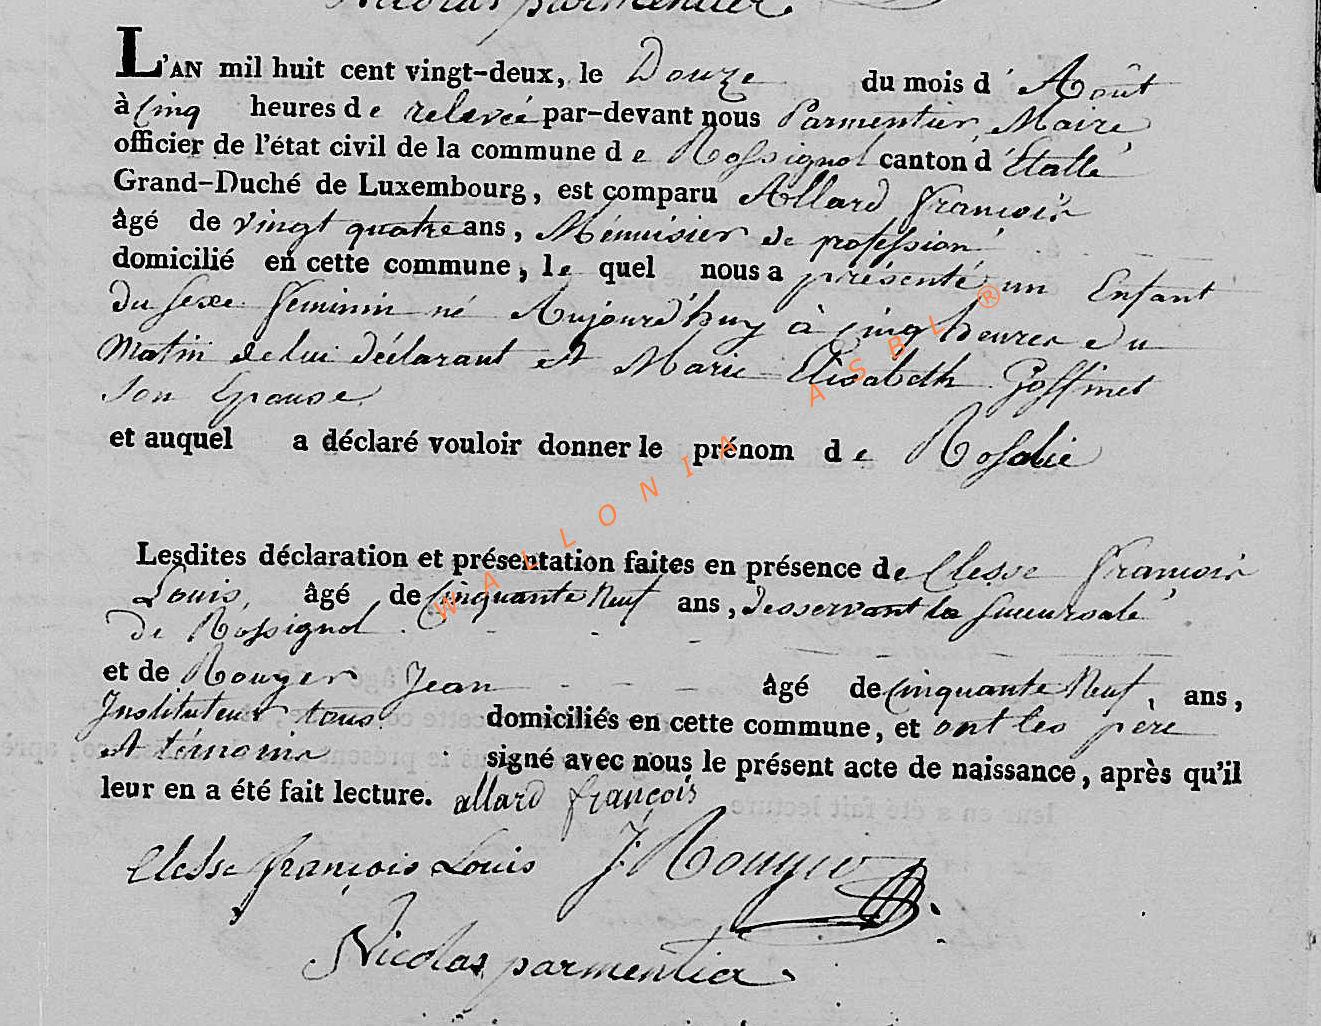 Nicolas parmentier.
L'AN mil huit cent vingt-deux, le Douze du mois d'Août
à Cinq heures de relevée par-devant nous Parmentier, Maire
officier de l'état civil de la commune de Rossignol canton d'Etalle
Grand-Duché de Luxembourg, est comparu Allard françois
âgé de vingt quatre ans, Ménuisier de profession
domicilié en cette commune, le quel nous a présenté un Enfant
du sexe féminin né Aujourd'huy à cinq heures du
Matin de lui déclarant et Marie Elisabeth Goffinet
Son Epouse
et auquel a déclaré vouloir donner le prénom de Rosalie
Lesdites déclaration et présentation faites en présence de Clesse françois
Louis, âgé de Cinquante Neuf ans, desservant la succursale
de Rossignol
et de Rouger Jean âgé de Cinquante Neuf, ans,
Instituteur tous domiciliés en cette commune, et ont les père
et témoins signé avec nous le présent acte de naissance, après qu'il
leur en a été fait lecture. allard françois
Clesse françois Louis J: Rougie
Nicolas parmentier.
WALLONIA ASBL ®